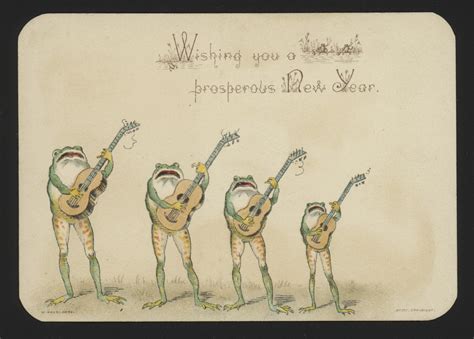 Wishing you a
prosperous New Year.